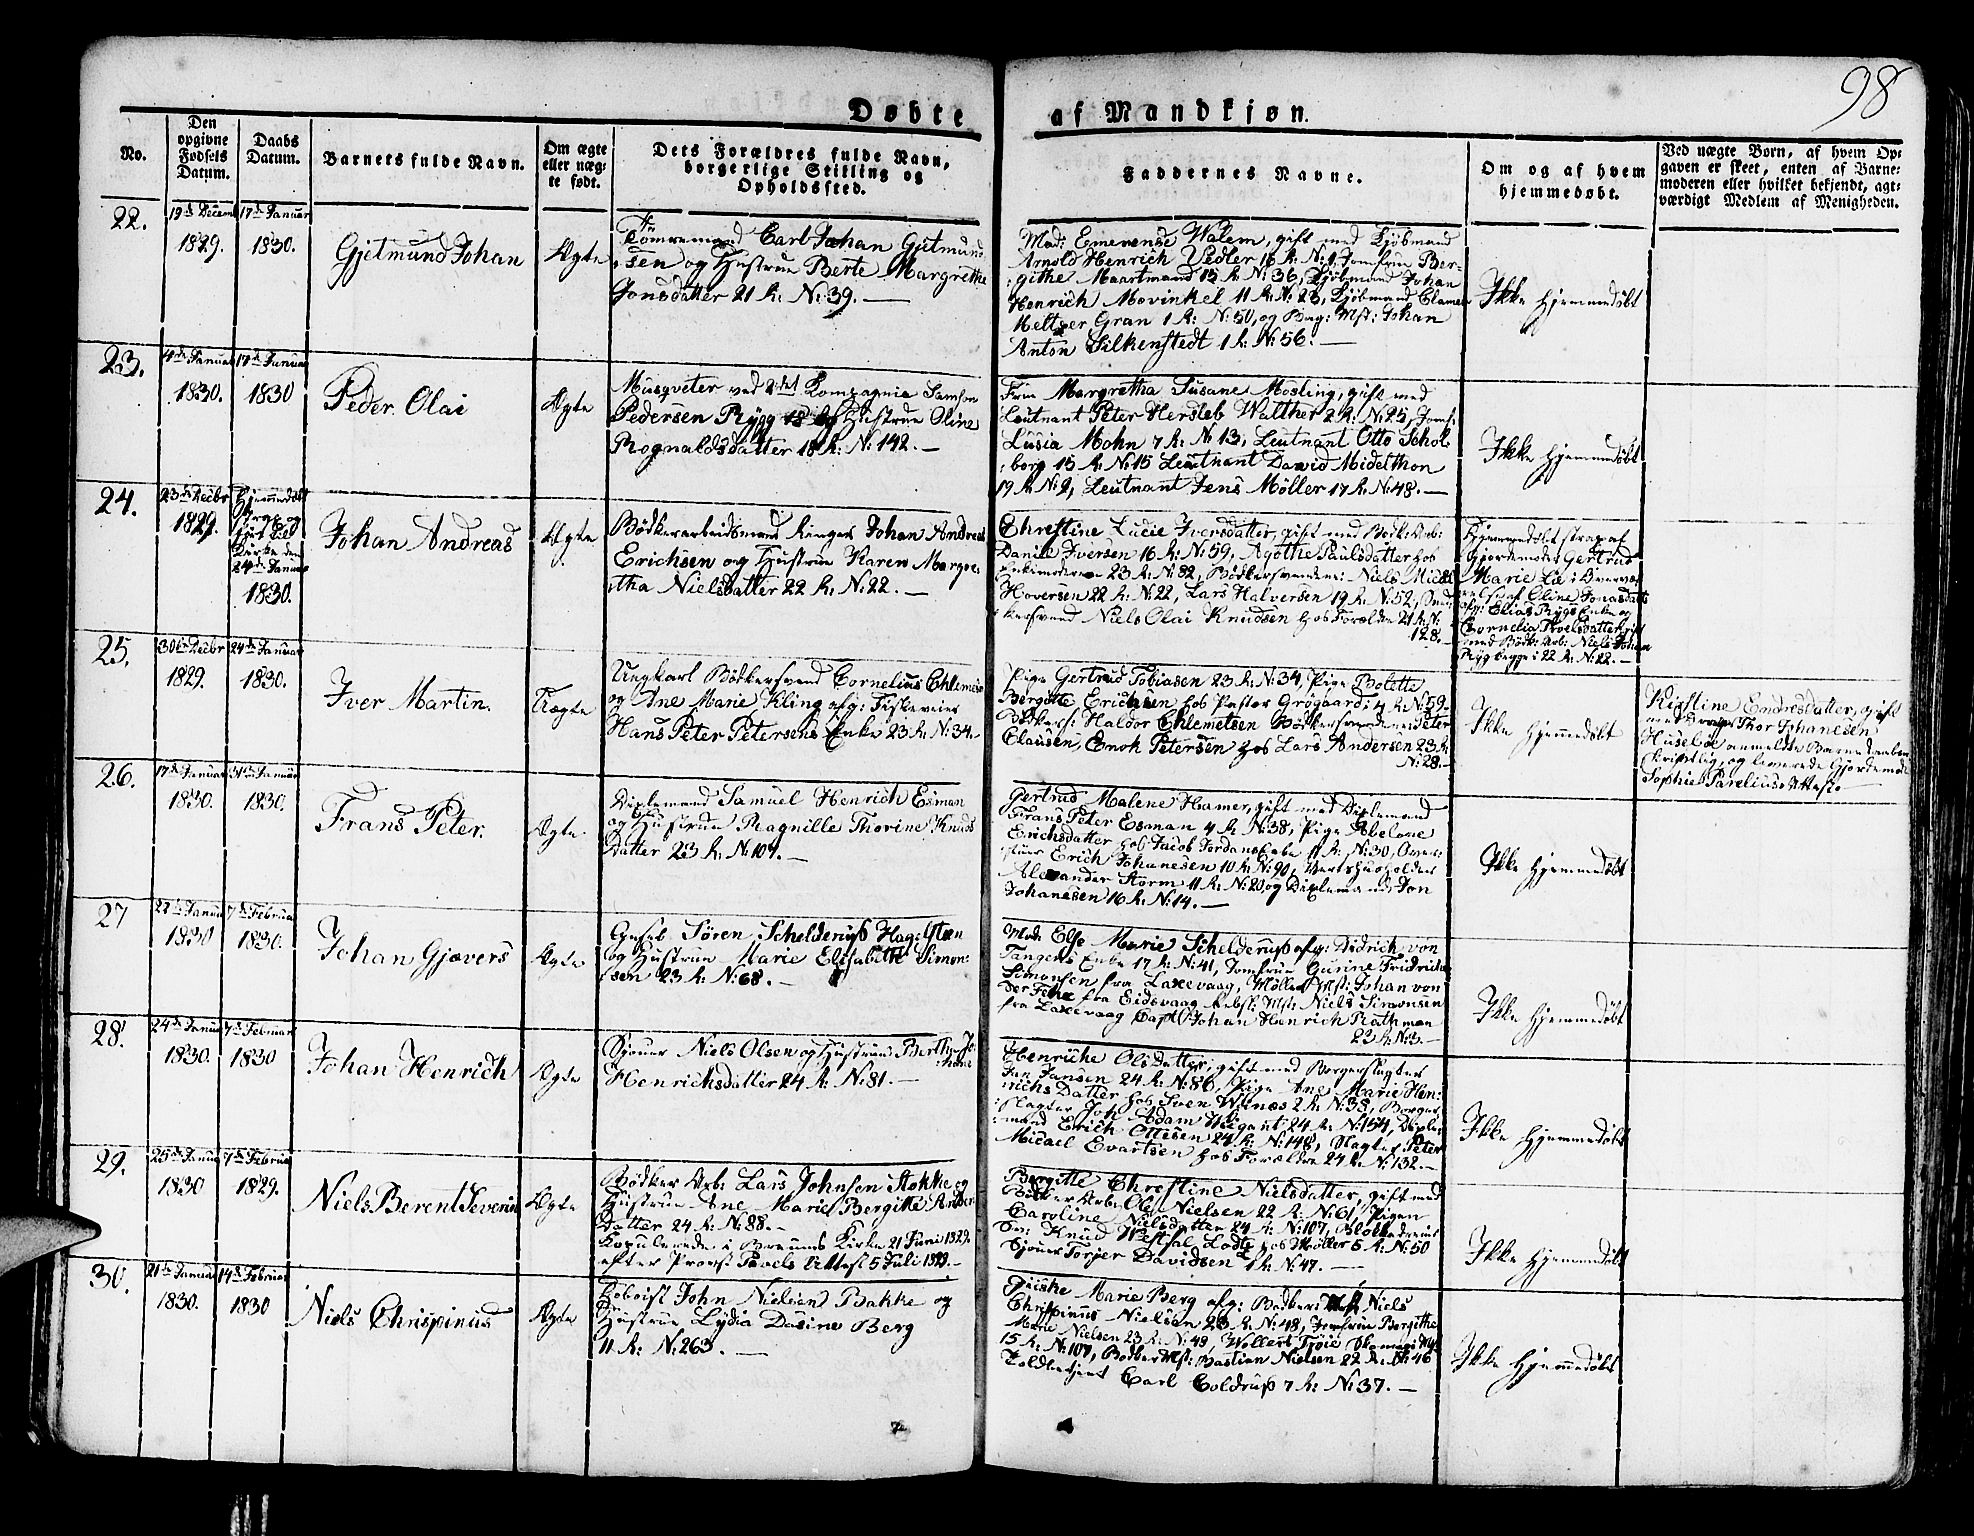 98
Døbte af Mandkjøn.
No.
Den opgivne Fødsels Datum.
Daabs Datum.
Barnets fulde Navn.
Om ægte eller uægte født.
Dets Forældres fulde Navn, borgerlige Stilling og Opholdssted.
Faddernes Navne.
Om og af hvem hjemmedøbt.
Ved uægte Børn, af hvem Opgaven er skeet, enten af Barnemoderen eller hvilket bekjendt, agtværdigt Medlem af Menigheden.
22.
19de Decem 1829.
17de Januar 1830.
Gjetmund Johan
Ægte
Tømmermand Carl Johan Gjetmund
sen og Hustrue Berte Margrethe
Jonsdatter 21 R. N: 39. —
Mad: Emerense Walem, gift med Kjøbmand
Arnold Henrich Vedler 16 R. N: 1, Jomfrue Ber-
githe Maartmand 15 R. N: 36, Kjøbmand Johan
Henrich Movinkel 11 R. N: 23, Kjøbmand Clamer
Meltzer Gran 1 R: N: 50, og Bag: Mst: Johan
Anton Silkenstedt 1 R: N: 56. —
Ikke hjemmedøbt
23.
4de Januar 1830.
17de Januar 1830
Peder Olai
Ægte
Musqveter ved 2det Kompagnie Samson
Pedersen Rygg og Hustrue Oline
Rognaldsdatter 18 R: N: 142. —
Frue Margretha Susane Mosling, gift med
Leutnant Peter Hersleb Walther 2 R: N: 25, Jomf:
Lusia Mohn 7 R: N 13, Leutnant Otto Schol
borg 15 R. N: 15 Leutnant David Midelthon
19 R. N: 9, Leutnant Jens Möller 17 R: N: 48. —
Ikke hjemmedøbt
24.
23de Decbr 1829.
Hjemmedøbt
Kirke den
24de Januar
1830.
Johan Andreas
Ægte
Bødkerarbeidsmand Johan Andreas
Erichsen og Hustrue Karen Margre-
tha Nielsdatter 22 R. N: 22. —
Chrestine Lucie Iversdatter, gift med Bødk: Arb:
Daniel Iversen 16 R: N: 59, Agothe Paulsdatter hos
23 R: N: 82, Bødkersvendene: Niels Michel
Hoversen 22 R: N: 22, Lars Halversen 19 R. N: 52, Sned:
kersvend Niels Olai Knudsen hos Forældre 21 R. N:
128. —
Hjemmedøbt strax af
Gjordemoder Gertrud
Marie Lie i
af Oline Jonasdatter
afg: Elias Ryggs Enke og
Cornelia Troelsdatter gift
med Bødk: Arb: Niels Johan
Ryg begge i 22 R. N: 22. —
25.
30te Decbr 1829.
24de Januar 1830.
Iver Martin.
Uægte
Ungkarl Bødkersvend Cornelius Chlemetsen
og Ane Marie Kling afg: Fiskeveier
Hans Peter Petersens Enke 23 R. N: 34. —
Pige Gertrud Tobiasen 23 R: N: 34, Pige Bolette
Bergitte Erichsen hos Pastor Grøgaard: 4 R. N: 59 -
Bødkers: Haldor Chlemetsen Bødkersvendene Peter
Clausen, Enok Petersen hos Lars Andersen 23 R
N: 28. —
Ikke hjemmedøbt
Kirstine Endresdatter, gift
med Thor Johanesen
Huseböe anmeldte Barnedaaben
skriftlig, og leverede Gjordemod:
Sophie Parelius Attest. —
26.
17de Januar 1830.
31te Januar 1830.
Frans Peter.
Ægte
Diplemand Samuel Henrich Esman
og Hustrue Ragnille Thorine Knuds
Datter 23 R. N: 107. —
Gertrud Malene Hamer, gift med Diplemand
Frans Peter Esman 4 R: N: 38, Pige Abelone
Erichsdatter hos Jacob Jordan 11 R. N: 30, Over:
Erich Johanesen 10 R: N: 90, Vertshusholder
Alexander Storm 11 R: N: 20 og Diplemand Jon
Johanesen 16 R: N: 14. —
Ikke hjemmedøbt
27
22de Januar 1830
7de Februar 1830.
Johan Gjævers
Ægte
Søren Schelderup Hagelsten
og Hustrue Marie Elisabeth Simon-
sen 23 R: N: 68. —
Mad: Else Marie Schelderup afg: Didrich von
Tangens Enke 17 R: N: 41, Jomfrue Gurine Fridricke
Simonsen fra Laxevaag, Møller Mst: Johan von
der Fehr fra Eidsvaag Mst: Niels Simonsen
fra Laxevaag Capt Johan Henrich Rathman
22 R: N: 3. —
Ikke hjemmedøbt
28.
24de Januar 1830.
7de Februar 1830
Johan Henrich
Ægte
Sjouer Niels Olsen og Hustrue Berthe Jo-
hane
Henrichsdatter 24 R. N: 81. —
Henriche Olsdatter, gift med Borgerslagter
Jan Jansen 24 R: N: 86, Pige Ane Marie Hen-
richs Datter hos Sven Winæs 2 R: N: 38, Borger
slagter Joh Adam Weigant 24 R: N: 154, Diple-
mand Erich Ottesen 24 R: N: 148, Slagter Peter
Micael Evartsen hos Forældre 24 R. N: 132. —
Ikke hjemmedøbt
29.
25de Januar 1830
7de Februar 1829.
Niels Berent Severin
Ægte
Bødker Arb: Lars Johnsen Stokke og
Hustrue Ane Marie Bergitte
Datter 24 R: N: 88. —
Kopulerede i Kirke 21 Juni 1829.
efter Provst Pavels Attest 5 Juli 1829. —
Bergitte Chrestine Nielsdatter, gift med
Bødker Arb: Ole Nielsen 22 R: N: 61, Pigen
Caroline Nielsdatter 24 R: N: 107,
Knud Westfal Lodtz hos Möller 5 R: N: 50
Sjouer Torjer Davidsen 1 R: N: 47. —
Ikke hjemmedøbt
30.
21de Januar 1830.
14de Februar 1830
Niels Chrispinus
Ægte
Hoboist John Nielsen Bakke og
Hustrue Lydia Dasine Berg
11 R: N: 263. —
Marie Berg afg: Bødker Mst Niels
Chrispinus Nielsen 23 R: N: 48, Jomfrue Bergithe
Marie Nielsen 23 R: N: 49, Wollert Trøie
15 R: N: 107, Bødker Mst: Bastian Nielsen 22 R: N 46
Toldbetjent Carl Coldrup 7 R: N: 37. —
Ikke hjemmedøbt